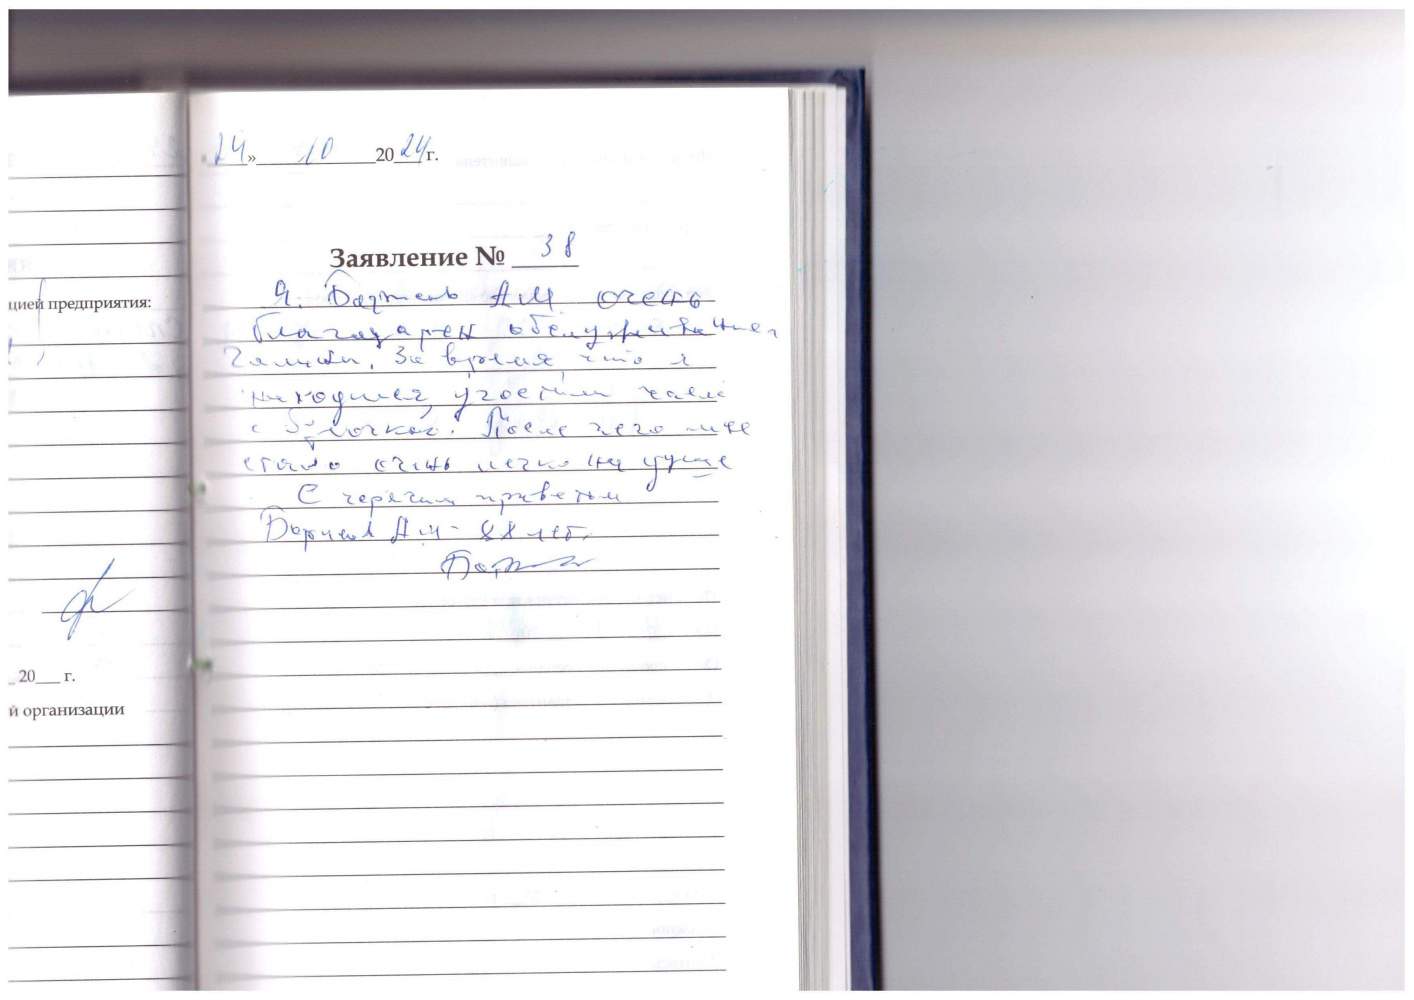 цией предприятия:
20___ г.
й организации
24» 10 2024 г.
Заявление № 38
Я. АМ очень
благодарен обслуживанием
За время что я
находился, угостили чаем
с булочкой. После чего мне
стало очень легко на душе
С горячим приветом
АМ - 88 лет.